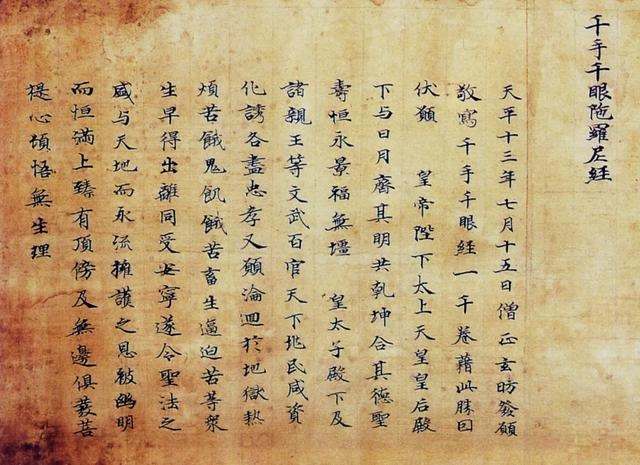 千手千眼陁羅尼経
天平十三年七月十五日僧正玄昉發願
敬寫千手千眼経一千巻藉此勝因
伏願 皇帝陛下太上天皇皇后殿
下与日月齊其明共乾坤合其德聖
壽恒永景福無壃 皇太子殿下及
諸親王等文武百官天下兆民咸資
化誘各盡忠孝又願淪迴於地獄熱
煩苦餓鬼飢餓苦畜生逼迫苦等衆
生早得出離同受安寧遂令聖法之
威与天地而永流擁護之恩被幽明
而恒滿上臻有頂傍及無邊俱發菩
提心頓悟無生理